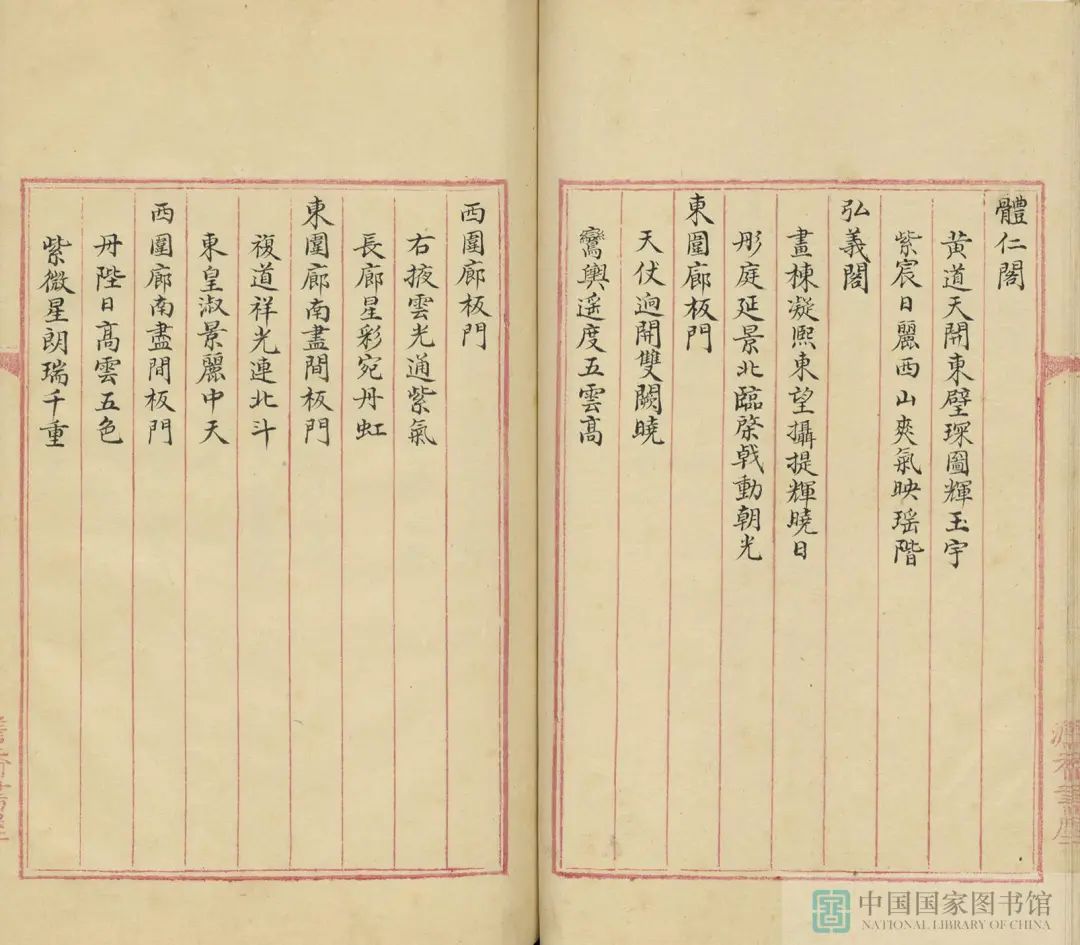 體仁閣
黃道天開東壁琛圖輝玉宇
紫宸日麗西山爽氣映瑶階
弘義閣
畫棟凝熙東望攝提輝曉日
彤庭延景北臨棨戟動朝光
東圍廊板門
天仗逈開雙闕曉
鸞輿遥度五雲髙
西圍廊板門
右掖雲光通紫氣
長廊星彩宛丹虹
東圍廊南盡間板門
複道祥光連北斗
東皇淑景麗中天
西圍廊南盡間板門
丹陛日髙雲五色
紫微星朗瑞千重
中国国家图书馆
NATIONAL LIBRARY OF CHINA